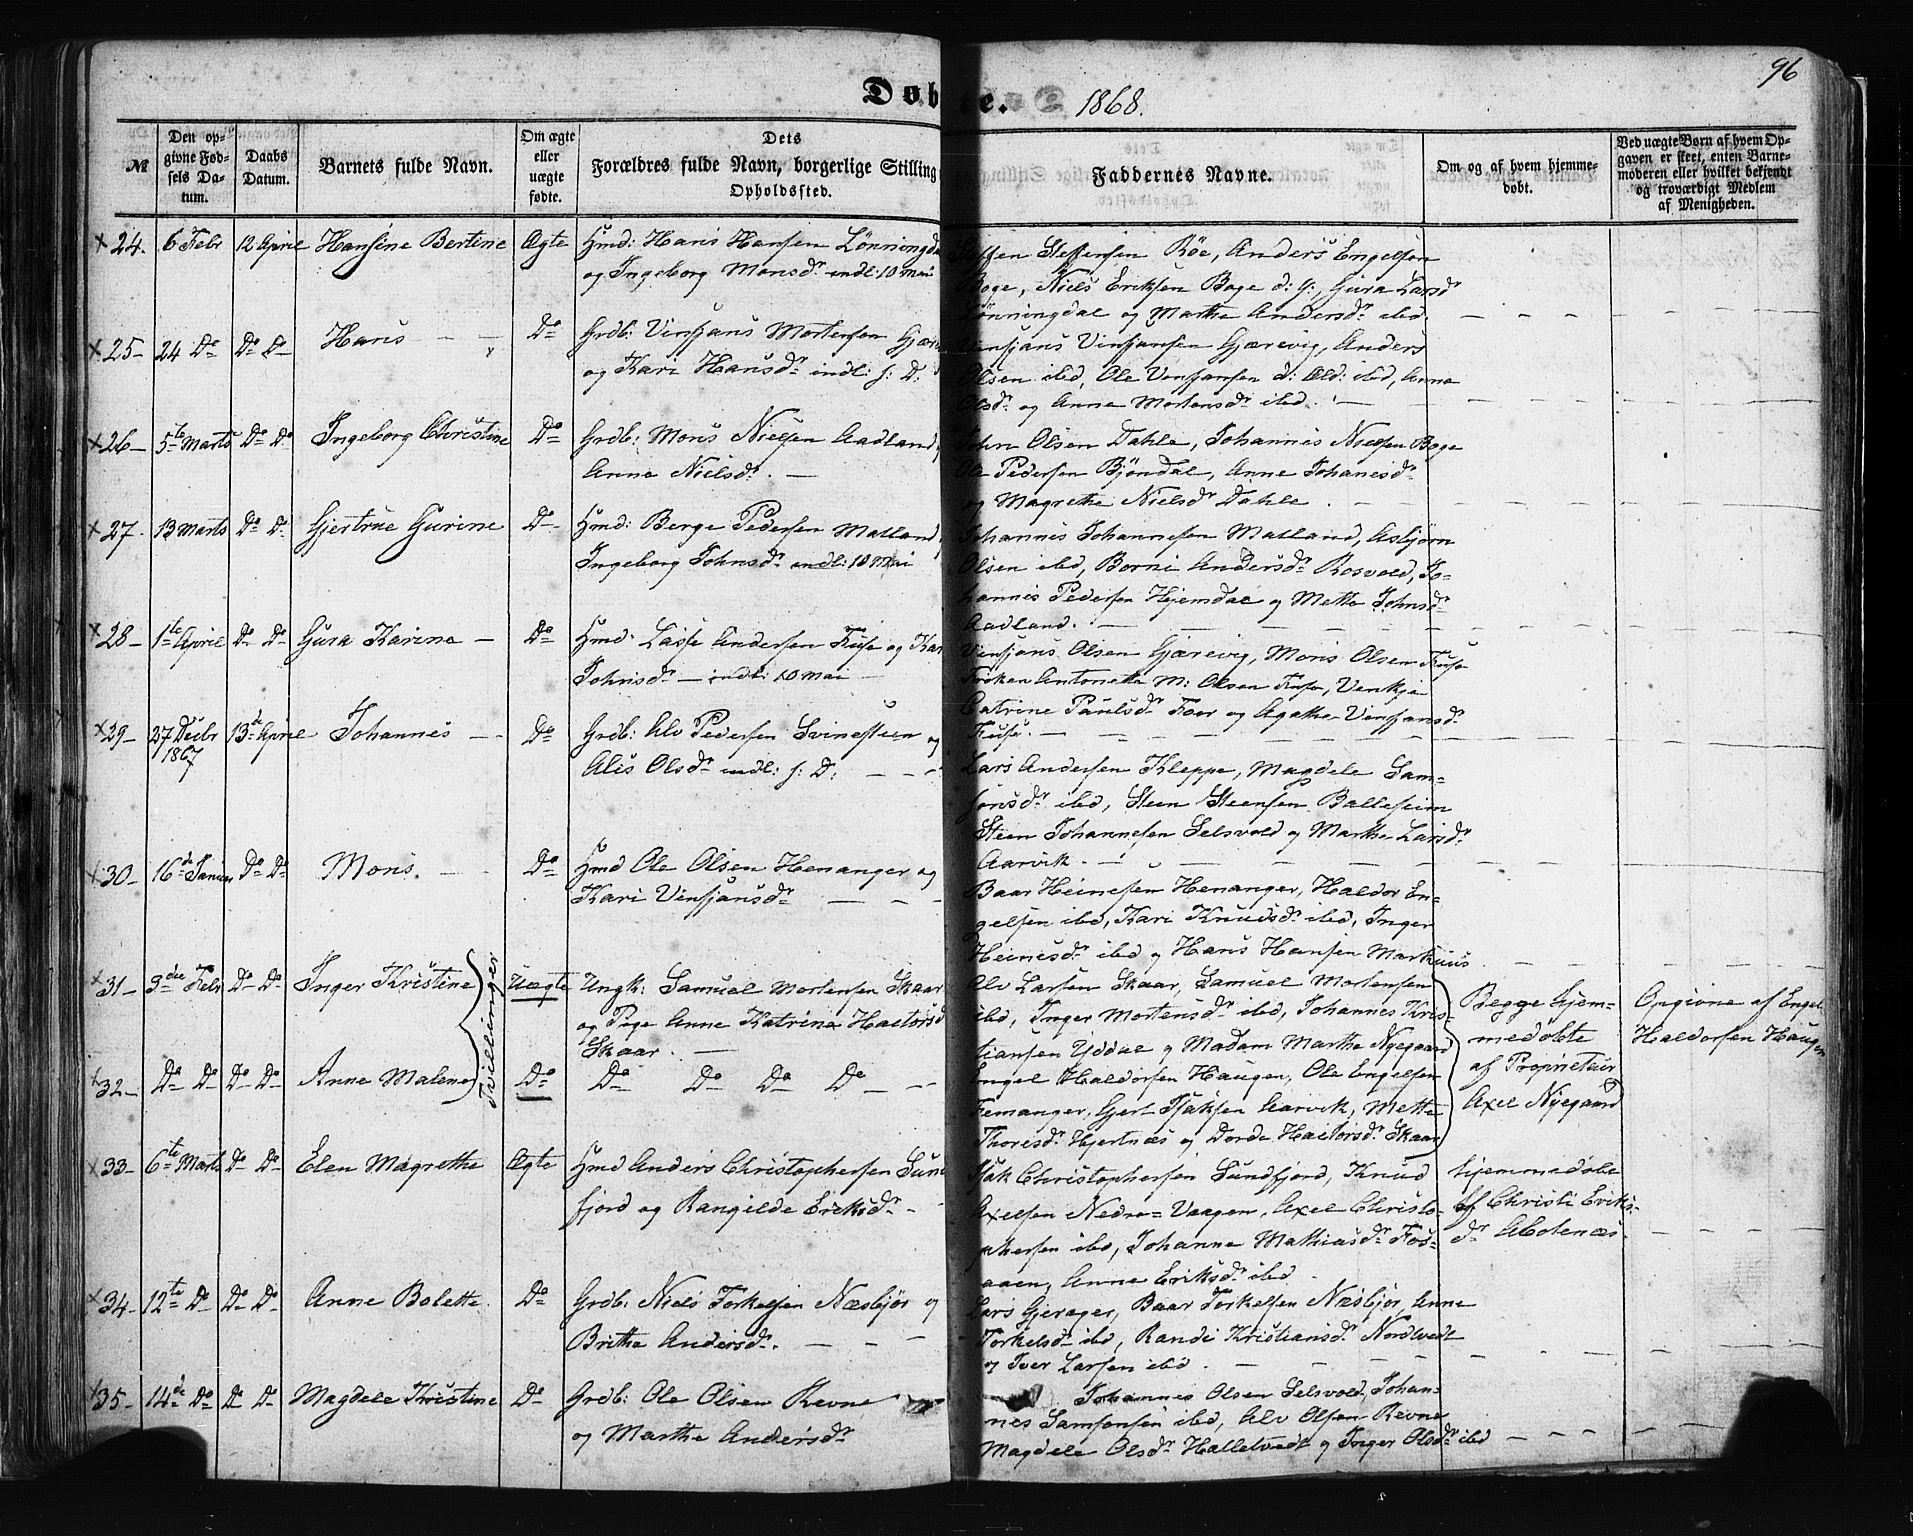 96
Døbte. 1868.
№ | Den opgivne Fødsels Datum. | Daabs Datum. | Barnets fulde Navn. | Om ægte eller uægte fødte. | Dets Forældres fulde Navn, borgerlige Stilling Opholdssted. | Faddernes Navne. | Om og af hvem hjemmedøbt. | Ved uægte Børn af hvem Opgaven er skeet, enten Barnemoderen eller hvilket bekjendt og troværdigt Medlem af Menigheden.
24. 6 Febr 12 April Hansine Bertine Ægte Hmd: Hans Hansen Lønningda
og Ingeborg Monsdr indl: 10 Mai
Steffen Steffensen Røe, Anders Engelsen
Boge, Niels Eriksen Boge d: y:, Gura Larsdr
Lønningdal og Marthe Andersdr ibd.
25 24 Do Do Do Hans Do Grdb: Vinsjans Mortensen Gjære
og Kari Hansdr indl: s: D:
Vinsjans Vinsjansen Gjærevig, Anders
Olsen ibd, Ole Vinsjansen d: Æld: ibd, Anna
Olsdr og Anne Mortensdr ibd.
26 5te Marts Do Do Ingeborg Christine Do Grdb: Mons Nielsen Aadland,
Anne Nielsdr.
John Olsen Dahle, Johannis Nielsen Boge
Ole Pedersen Bjøndal, Anne Johanesdr
og Magrethe Nielsdr Dahle.
27. 13 Marts Do Do Gjertrue Gurine Do Hmd: Berge Pedersen Matland,
Ingeborg Johnsdr indl: 10 Mai
Johannis Johannesen Matland, Asbjørn
Olsen ibd, Borni Andersdr Rosvold, Jo-
hannis Pedersen Hjemdal og Mette Johnsdr
Aadland.
28 1te April Do Do Gura Karina Do Hmd: Lasse Andersen Fuse og Kar
Johnsdr indl: 10 Mai
Vinsjans Olsen Gjærevig, Mons Olsen Fuse
Frøken Antonette M: Olsen Fuse, Venkje
Catrine Paulsdr Foer og Agathe Vinsjansdr
Fuse.
29 27 Decbr 1867 13de April Johannes Do Grdb: Alv Pedersen Svinesteen og
Alis Olsdr indl: s: D:
Lars Andersen Kleppe, Magdele Sam-
sonsdr ibd, Steen Steensen Balleseim
Steen Johannesen Selsvold og Marthe Larsdr
Aarvik.
30 16de Januar Do Do Mons. Do Hmd Ole Olsen Henanger og
Kari Vinsjansdr
Baar Heinesen Henanger, Haldor En-
gelsen ibd, Kari Knudsdr ibd, Inger
Heinesdr ibd og Hans Hansen Markhuus.
31 3die Febr Do Do Inger Kristine Tvillinger Uægte Ungk: Samuel Mortensen Skaar
og Pige Anne Katrina Haktorsd
Skaar.
Alv Larsen Skaar, Samuel Mortensen
ibd, Inger Mortensdr ibd, Johannes Kris-
tiansen Yddal og Madam Marthe Nyegaard
Begge hjem-
medøbte
af Proprietair
Axel Nyegaard
Opgivne af Engel
Haldorsen Haugen
32 Do Do Do Do Anne Malene Do Do Do Do Do
Engel Haldorsen Haugen, Ole Engelsen
Femanger, Gjert Isaksen Aarvik, Mette
Thoresdr Hjertnæs og Dorde Haktorsdr Skaar
33 6te Marts Do Do Elen Magrethe Ægte Hmd Anders Christophersen Sund
fjord og Rangilde Eriksdr
Isak Christophersen Sundfjord, Knud
Axelsen Nedre-Vaagen, Axel Christo-
phersen ibd, Johanne Mathiasdr Fos-
aaen, Anne Eriksdr ibd.
Hjemmedøbt
af Christi Eriks-
dr Aletenæs.
34 12te Do Do Do Anne Bolette. Do Grdb: Niels Torkelsen Næsbjør og
Brithe Andersdr.
Lars Gjerager, Baar Torkelsen Næsbjør, Anne
Torkelsdr ibd, Randi Kristiansdr Nordtvedt
og Iver Larsen ibd.
35 14de Do Do Do Magdele Kristine Do Grdb: Ole Olsen Revne
og Marthe Andersdr
Johannes Olsen Selsvold, Johan-
nes Samsonsen ibd, Alv Olsen Revne
Magdele Olsdr Halletvedt og Inger Olsdr ibd